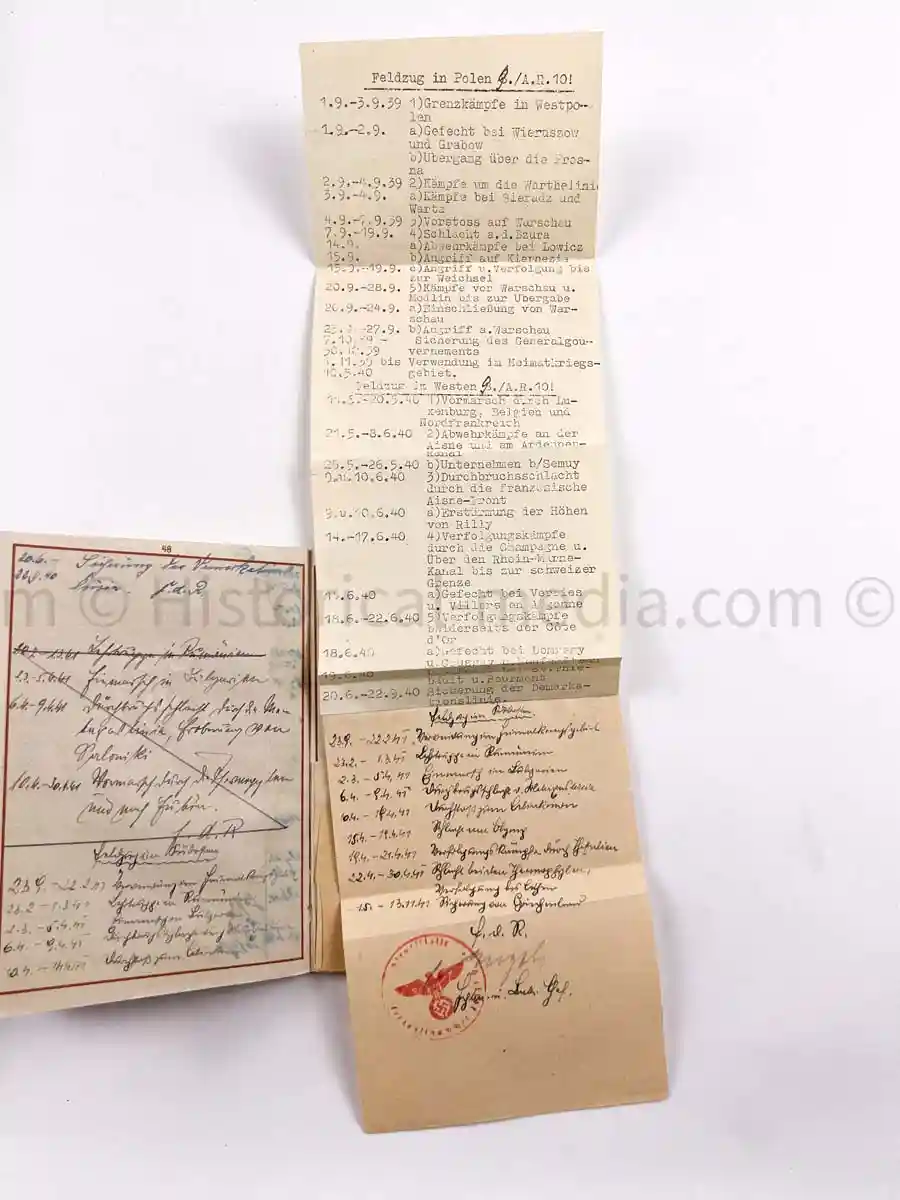 Feldzug in Polen 8./A.R.10!
1.9.-3.9.39 1)Grenzkämpfe in Westpo-
len
1.9.-2.9. a)Gefecht bei Wieruszow
und Grabow
b)Übergang über die Pros-
na
2.9.-4.9.39 2)Kämpfe um die Warthelinie
3.9.-4.9. a)Kämpfe bei Sieradz und
Warta
4.9.- .9.39 3)Vorstoss auf Warschau
7.9.-19.9. 4)Schlacht a.d.Bzura
14.9. a)Abwehrkämpfe bei Lowicz
15.9. b)Angriff auf Kiernozia
15.9.-19.9. c)Angriff u.Verfolgung bis
zur Weichsel
20.9.-28.9. 5)Kämpfe vor Warschau u.
Modlin bis zur Übergabe
20.9.-24.9. a)Einschließung von War-
schau
-27.9. b)Angriff a.Warschau
7.10. Sicherung des Generalgou-
vernements
bis Verwendung im Heimatkriegs-
10.5.40 gebiet.
Feldzug im Westen 8./A.R.10!
-20.5.40 1)Vormarsch durch Lu-
xenburg, Belgien und
Nordfrankreich
21.5.-8.6.40 2)Abwehrkämpfe an der
Aisne und am Ardennen-
kanal
25.5.-26.5.40 b)Unternehmen b/Semuy
9.u.10.6.40 3)Durchbruchsschlacht
durch die französische
Aisne-Front
9.u.10.6.40 a)Erstürmung der Höhen
von Rilly
14.-17.6.40 4)Verfolgungskämpfe
durch die Champagne u.
Über den Rhein-Marne-
Kanal bis zur schweizer
Grenze
.6.40 a)Gefecht bei Verries
u. Villers en Argonne
18.6.-22.6.40 5)Verfolgungskämpfe
beiderseits der Côte
d'Or
18.6.40 a)Gefecht bei
19.6.40
20.6.-22.9.40 Sicherung der Demarka-
tionslinie.
Feldzug im Südosten
23.9. - 22.2.41 Verwendung im Heimatkriegsgebiet
23.2. - 1.3.41 Lehrtruppe in Rumänien
2.3. - 5.4.41 Einmarsch in Bulgarien
6.4. - 9.4.41 Durchbruchschlacht d. Metaxaslinie
10.4. - 14.4.41 Durchstoß zum
15.4. - 19.4.41 Schlacht am Olymp
19.4. - 21.4.41 Verfolgungskämpfe durch Thessalien
22.4. - 30.4.41 Schlacht bei den Thermopylen,
Verfolgung bis Athen
1.5. - 13.11.41 Sicherung von Griechenland
F. d. R.
48
20.6. - Sicherung der Demarkations-
22.9.40 F.d.R.
Lehrtruppe in Rumänien
2.3.-5.4.41 Einmarsch in Bulgarien
6.4.-9.4.41 Durchbruchsschlacht durch die Me-
taxaslinie, Eroberung von
Saloniki
10.4.-30.4.41 Vormarsch durch die Thermopylen
und nach
F. d. R
Feldzug im Südosten
23.9. - 22.2.41 Verwendung im Heimatkriegsgebiet
23.2. - 1.3.41 Lehrtruppe in Rumänien
2.3. - 5.4.41 Einmarsch in Bulgarien
6.4. - 9.4.41 Durchbruchschlacht
10.4. - 14.4.41 Durchstoß zum
© Historicalmedia.com ©